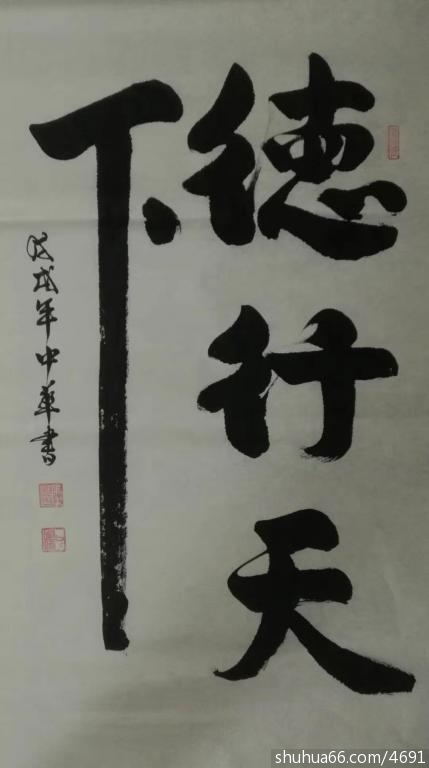 德行天
下
戊戌年中華書
shuhua66.com/4691